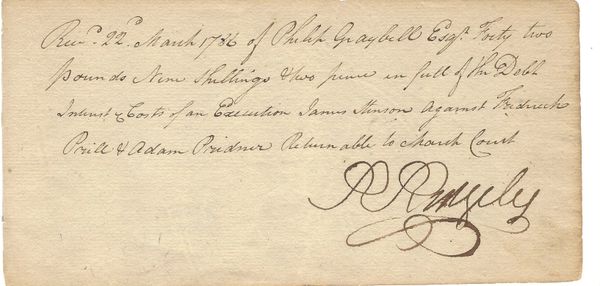 Rec.d 22.d March 1786 of Philip Graybell Esq.r Forty two
pounds Nine Shillings & two pence in full of the Debt
Interest & Costs of an Execution James Stinson Against Fredreck
Prill & Adam Pridner Returnable to March Court
R Ridgely